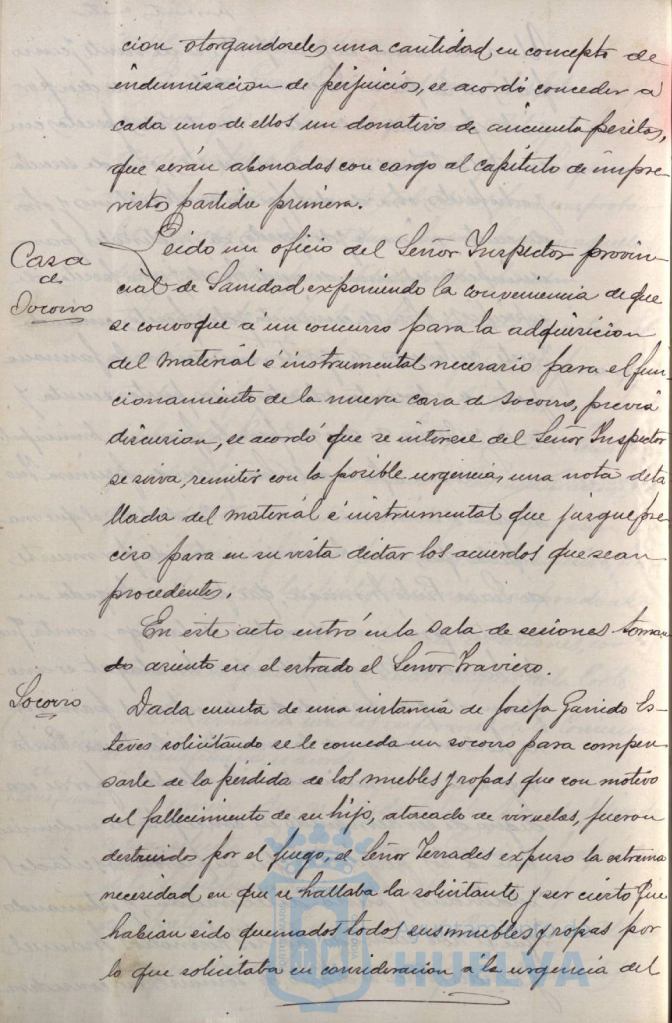 cion otorgandoseles una cantidad en concepto de
indemnisacion de perjuicios, se acordó conceder á
cada uno de ellos un donativo de cincuenta pesetas,
que serán abonadas con cargo al capítulo de impre-
vistos partida primera.
Casa
de
Socorro
Leido un oficio del Señor Inspector provin-
cial de Sanidad exponiendo la conveniencia de que
se convoque á un concurso para la adquisicion
del material é instrumental necesario para el fun-
cionamiento de la nueva casa de socorro, previa
discusion, se acordó que se interese del Señor Inspector
se sirva, remitir con la posible urgencia, una nota deta
llada del material é instrumental que jusgue pre-
ciso para en su vista dictar los acuerdos que sean
procedentes.
En este acto entró en la sala de sesiones toman-
do asiento en el estrado el Señor Travieso.
Socorro
Dada cuenta de una instancia de Josefa Garrido Es-
teves solicitando se le conceda un socorro para compen
sarle de la pérdida de los muebles y ropas que con motivo
del fallecimiento de su hijo, atacado de viruelas, fueron
destruidos por el fuego, el Señor Terrades expuso la extrema
necesidad en que se hallaba la solicitante y ser cierto que
habian sido quemados todos sus muebles y ropas por
lo que solicitaba en consideracion á la urgencia del
HUELVA